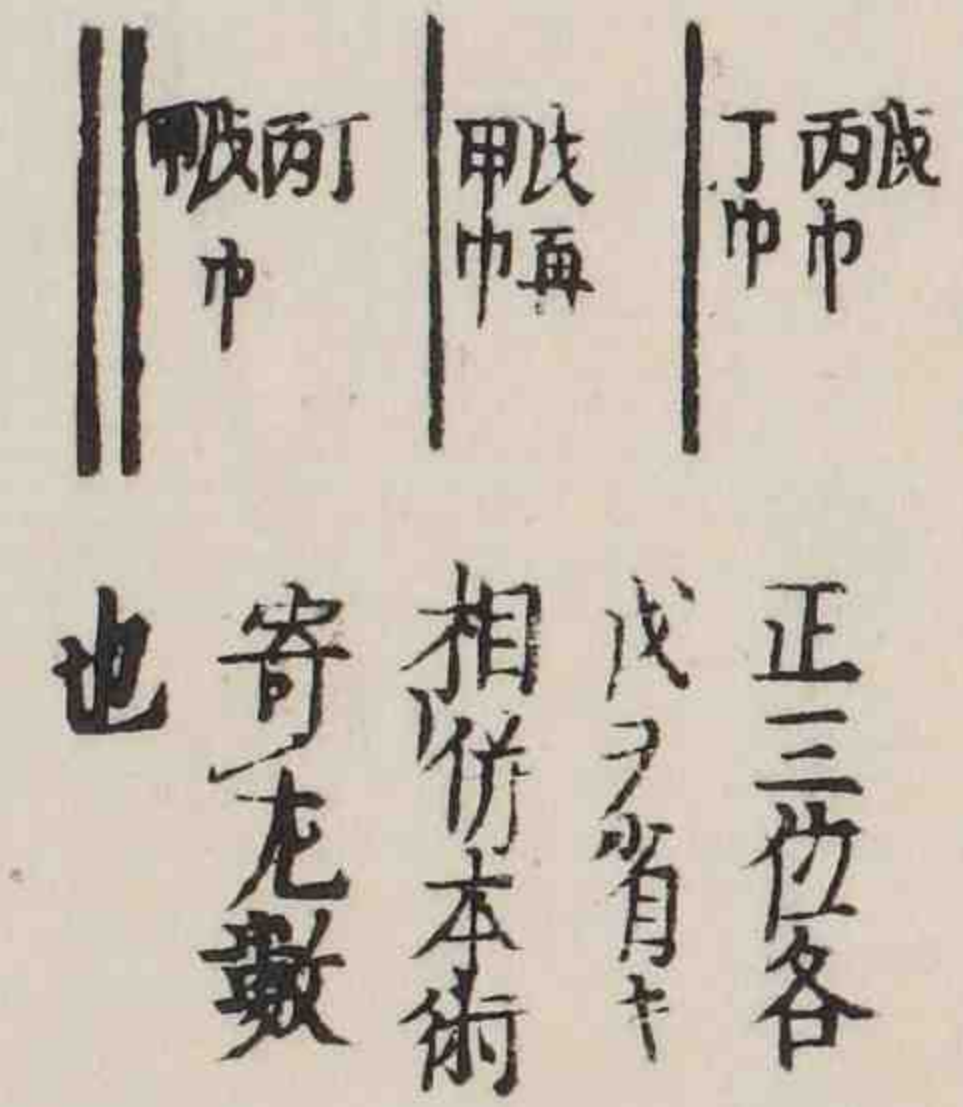 戊丙巾丁巾
戊再甲巾
丁丙戊巾甲
正三位各
戊ヲ省キ
相併本術
寄㆑左數
也